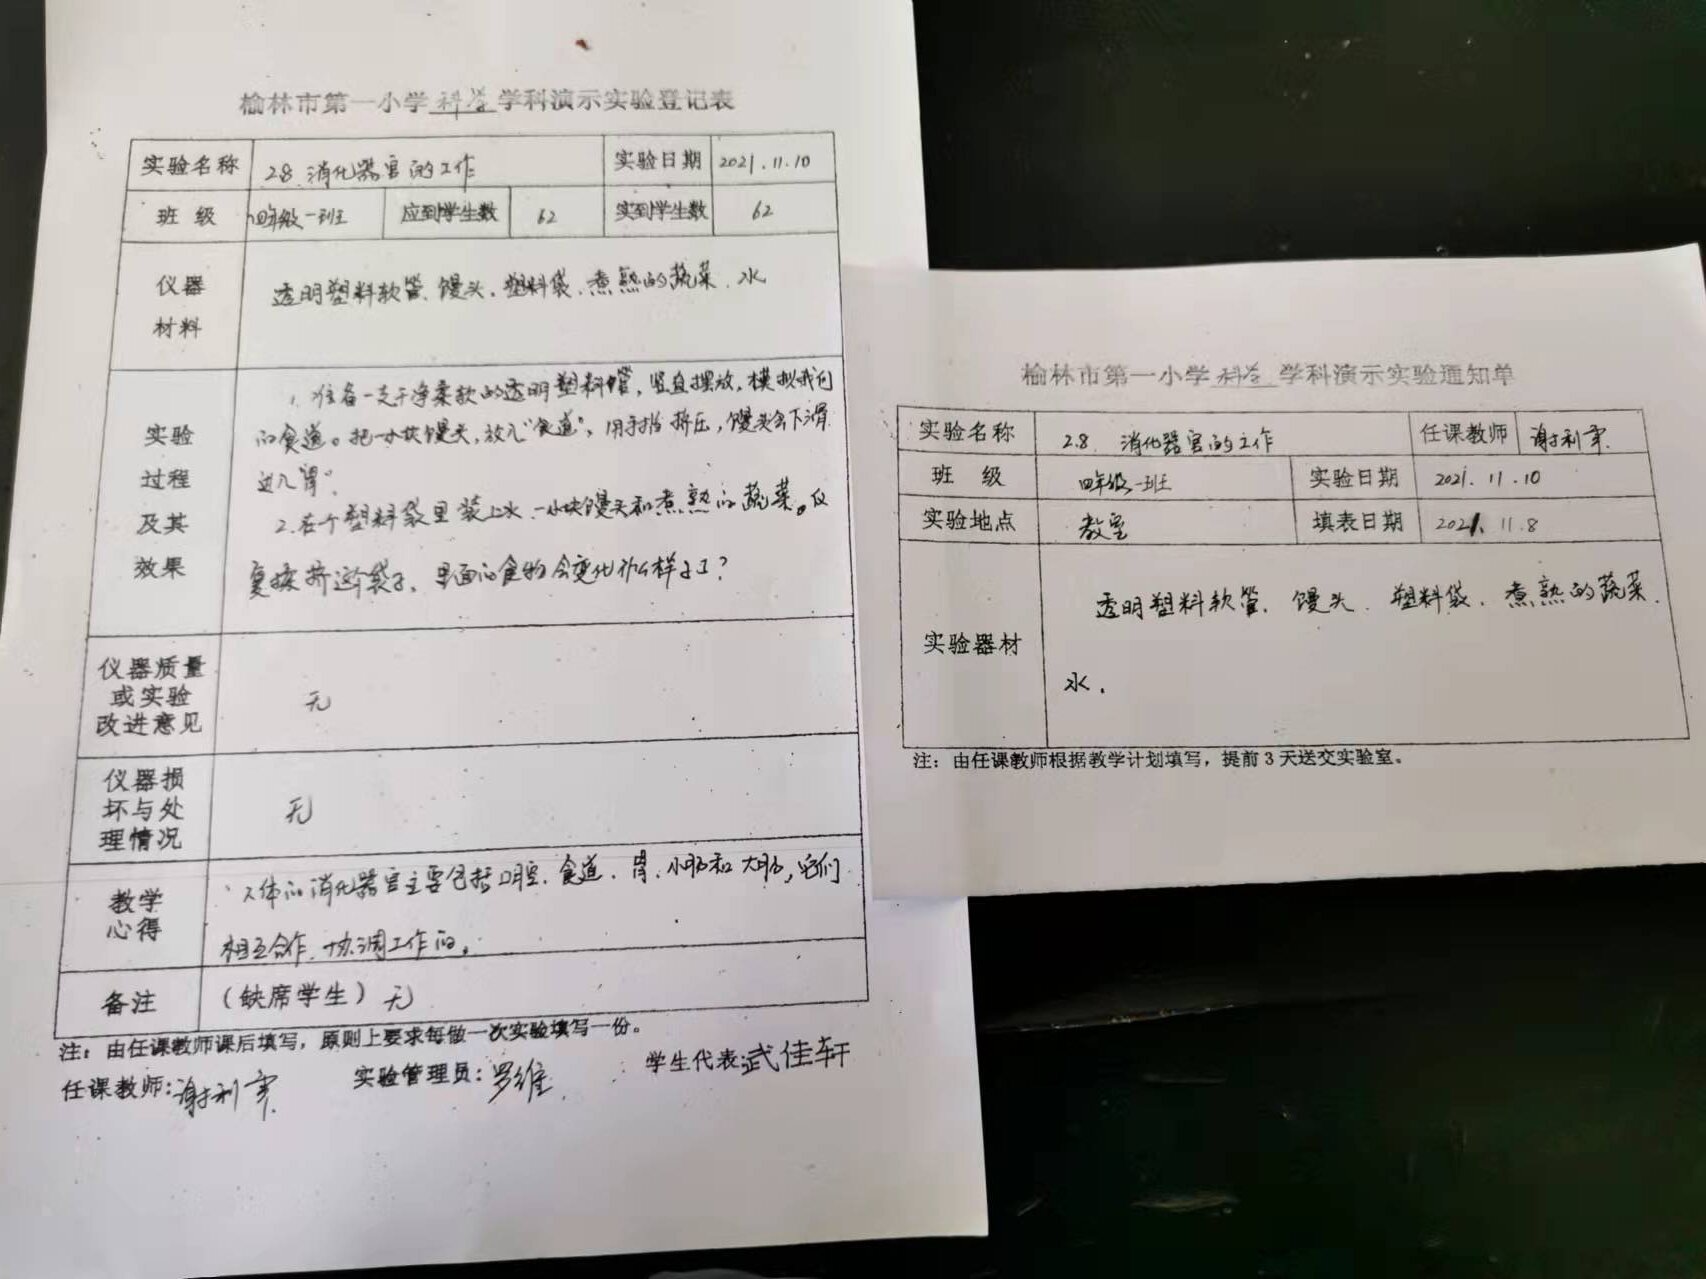 榆林市第一小学科学学科演示实验登记表
实验名称 2.8.消化器官的工作 实验日期 2021.11.10
班级 四年级一班 应到学生数 62 实到学生数 62
仪器
材料
透明塑料软管、馒头、塑料袋、煮熟的蔬菜、水
实验
过程
及其
效果
1.准备一支干净柔软的透明塑料管,竖直摆放,模拟我们
的食道。把一小块馒头,放入“食道”,用手指挤压,馒头会下滑
进入“胃”。
2.在个塑料袋里装上水、一小块馒头和煮熟的蔬菜。反
复揉挤这个袋子,里面的食物会变化什么样子了?
仪器质量
或实验
改进意见
无
仪器损
坏与处
理情况
无
教学
心得
人体的消化器官主要包括口腔、食道、胃、小肠和大肠,它们
相互合作、协调工作的。
备注 (缺席学生)无
注:由任课教师课后填写,原则上要求每做一次实验填写一份。
任课教师:谢利军 实验管理员:罗维 学生代表:武佳轩
榆林市第一小学科学学科演示实验通知单
实验名称 2.8.消化器官的工作 任课教师 谢利军
班级 四年级一班 实验日期 2021.11.10
实验地点 教室 填表日期 2021.11.8
实验器材
透明塑料软管、馒头、塑料袋、煮熟的蔬菜、
水。
注:由任课教师根据教学计划填写,提前3天送交实验室。